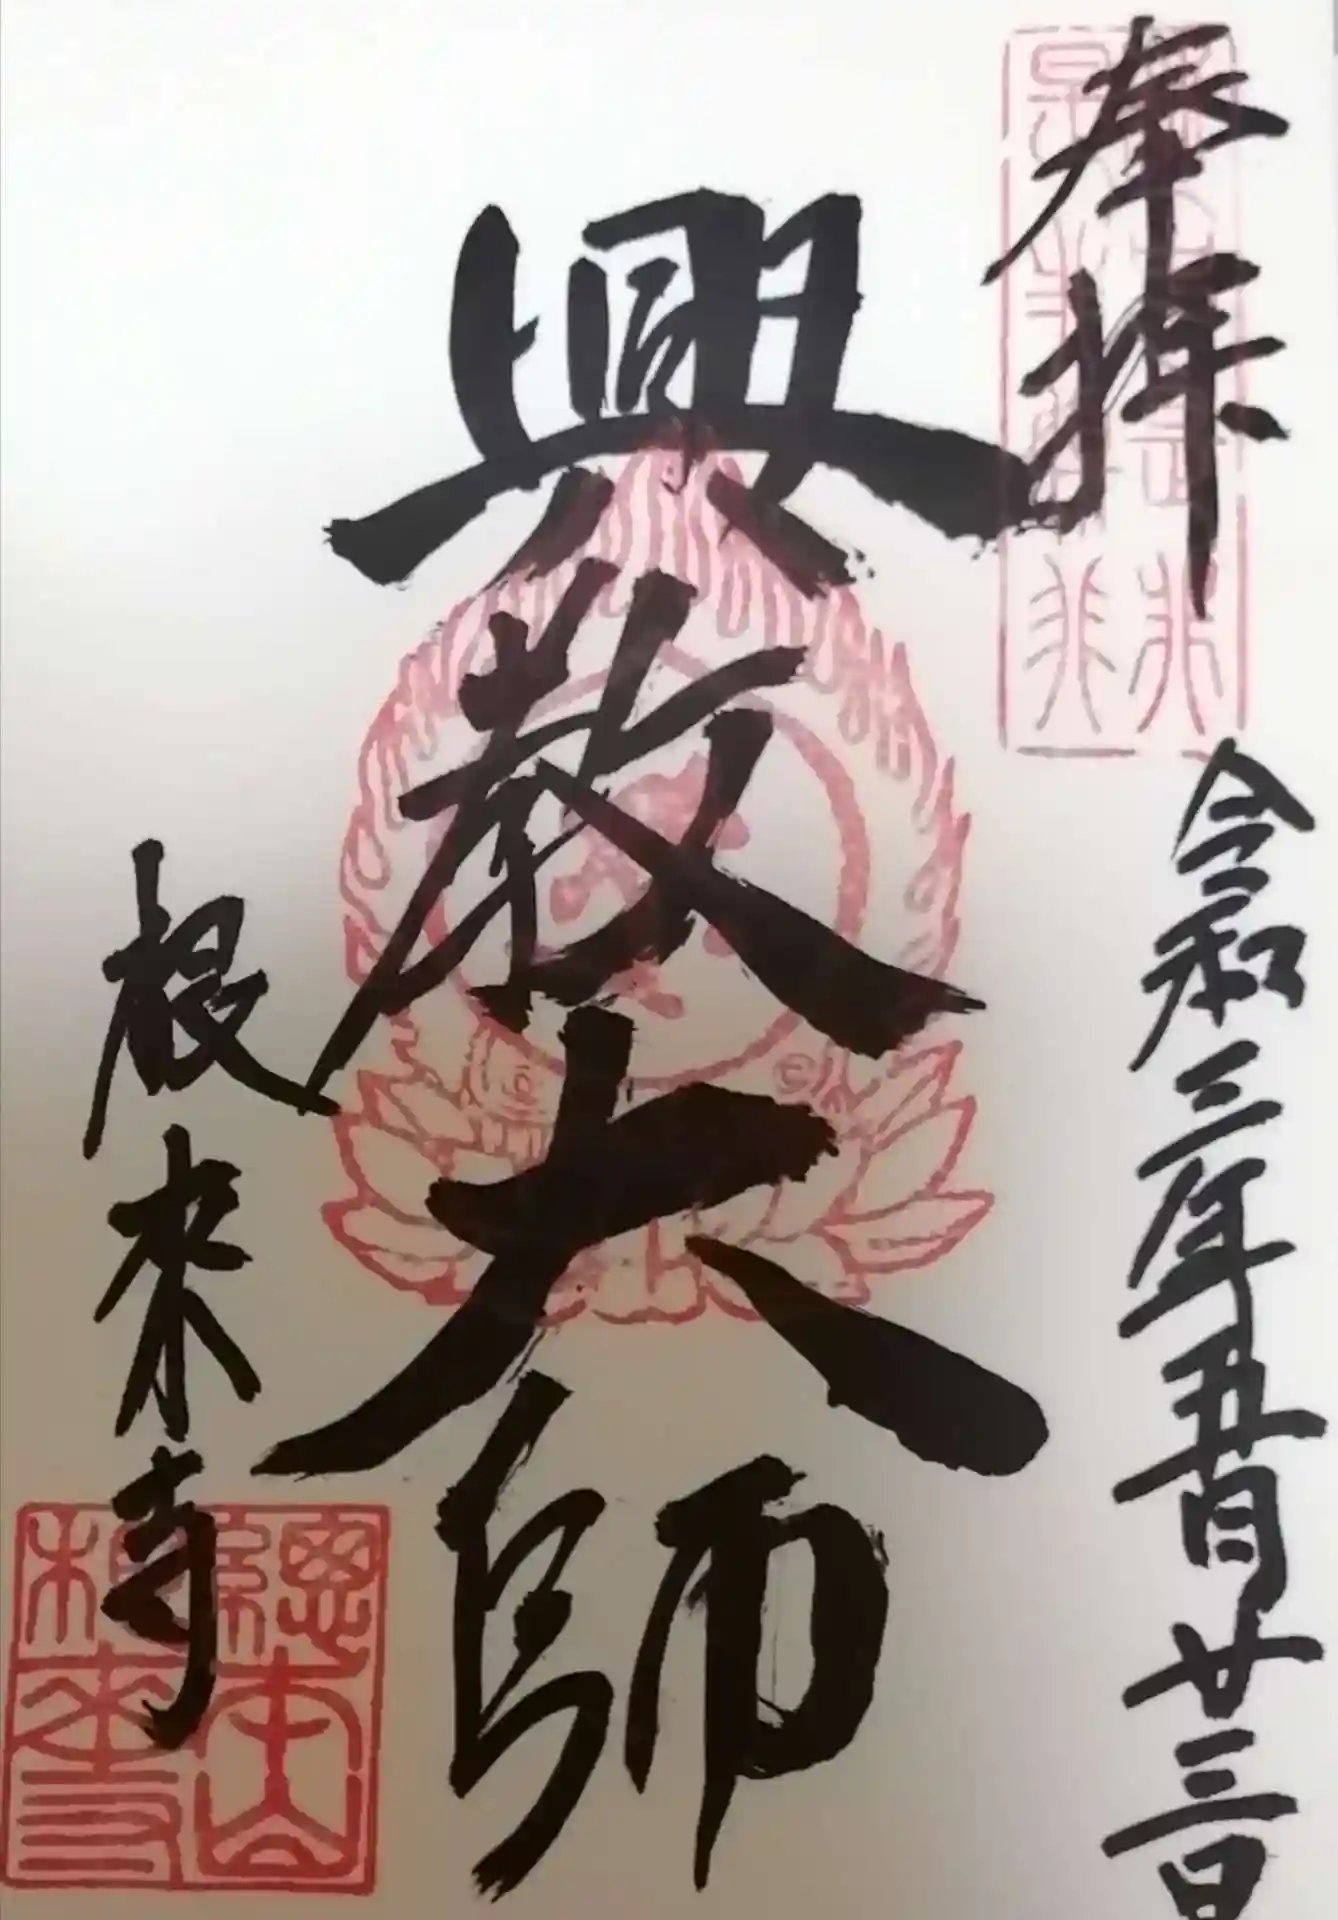 奉拝
令和三年五月廿三日
興教大師
根来寺
總本山
根来寺
©